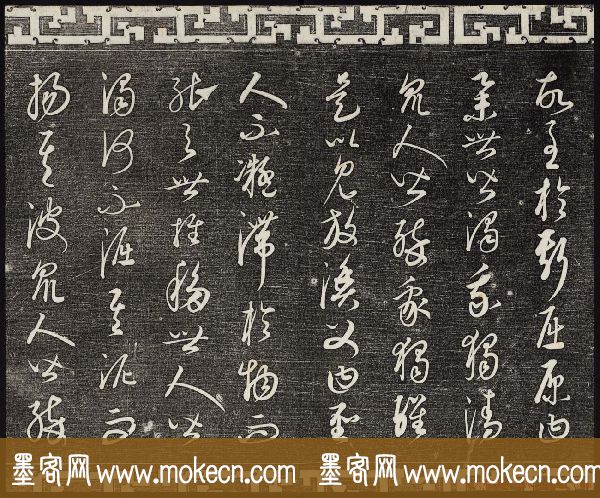 故至於斯屈原曰
舉世皆濁我獨清
眾人皆醉我獨醒
是以見放漁父曰聖
人不凝滯於物而
能與世推移世人皆
濁何不淈其泥而
揚其波眾人皆醉
墨客网 www.mokecn.com 墨客网 www.mokecn.com